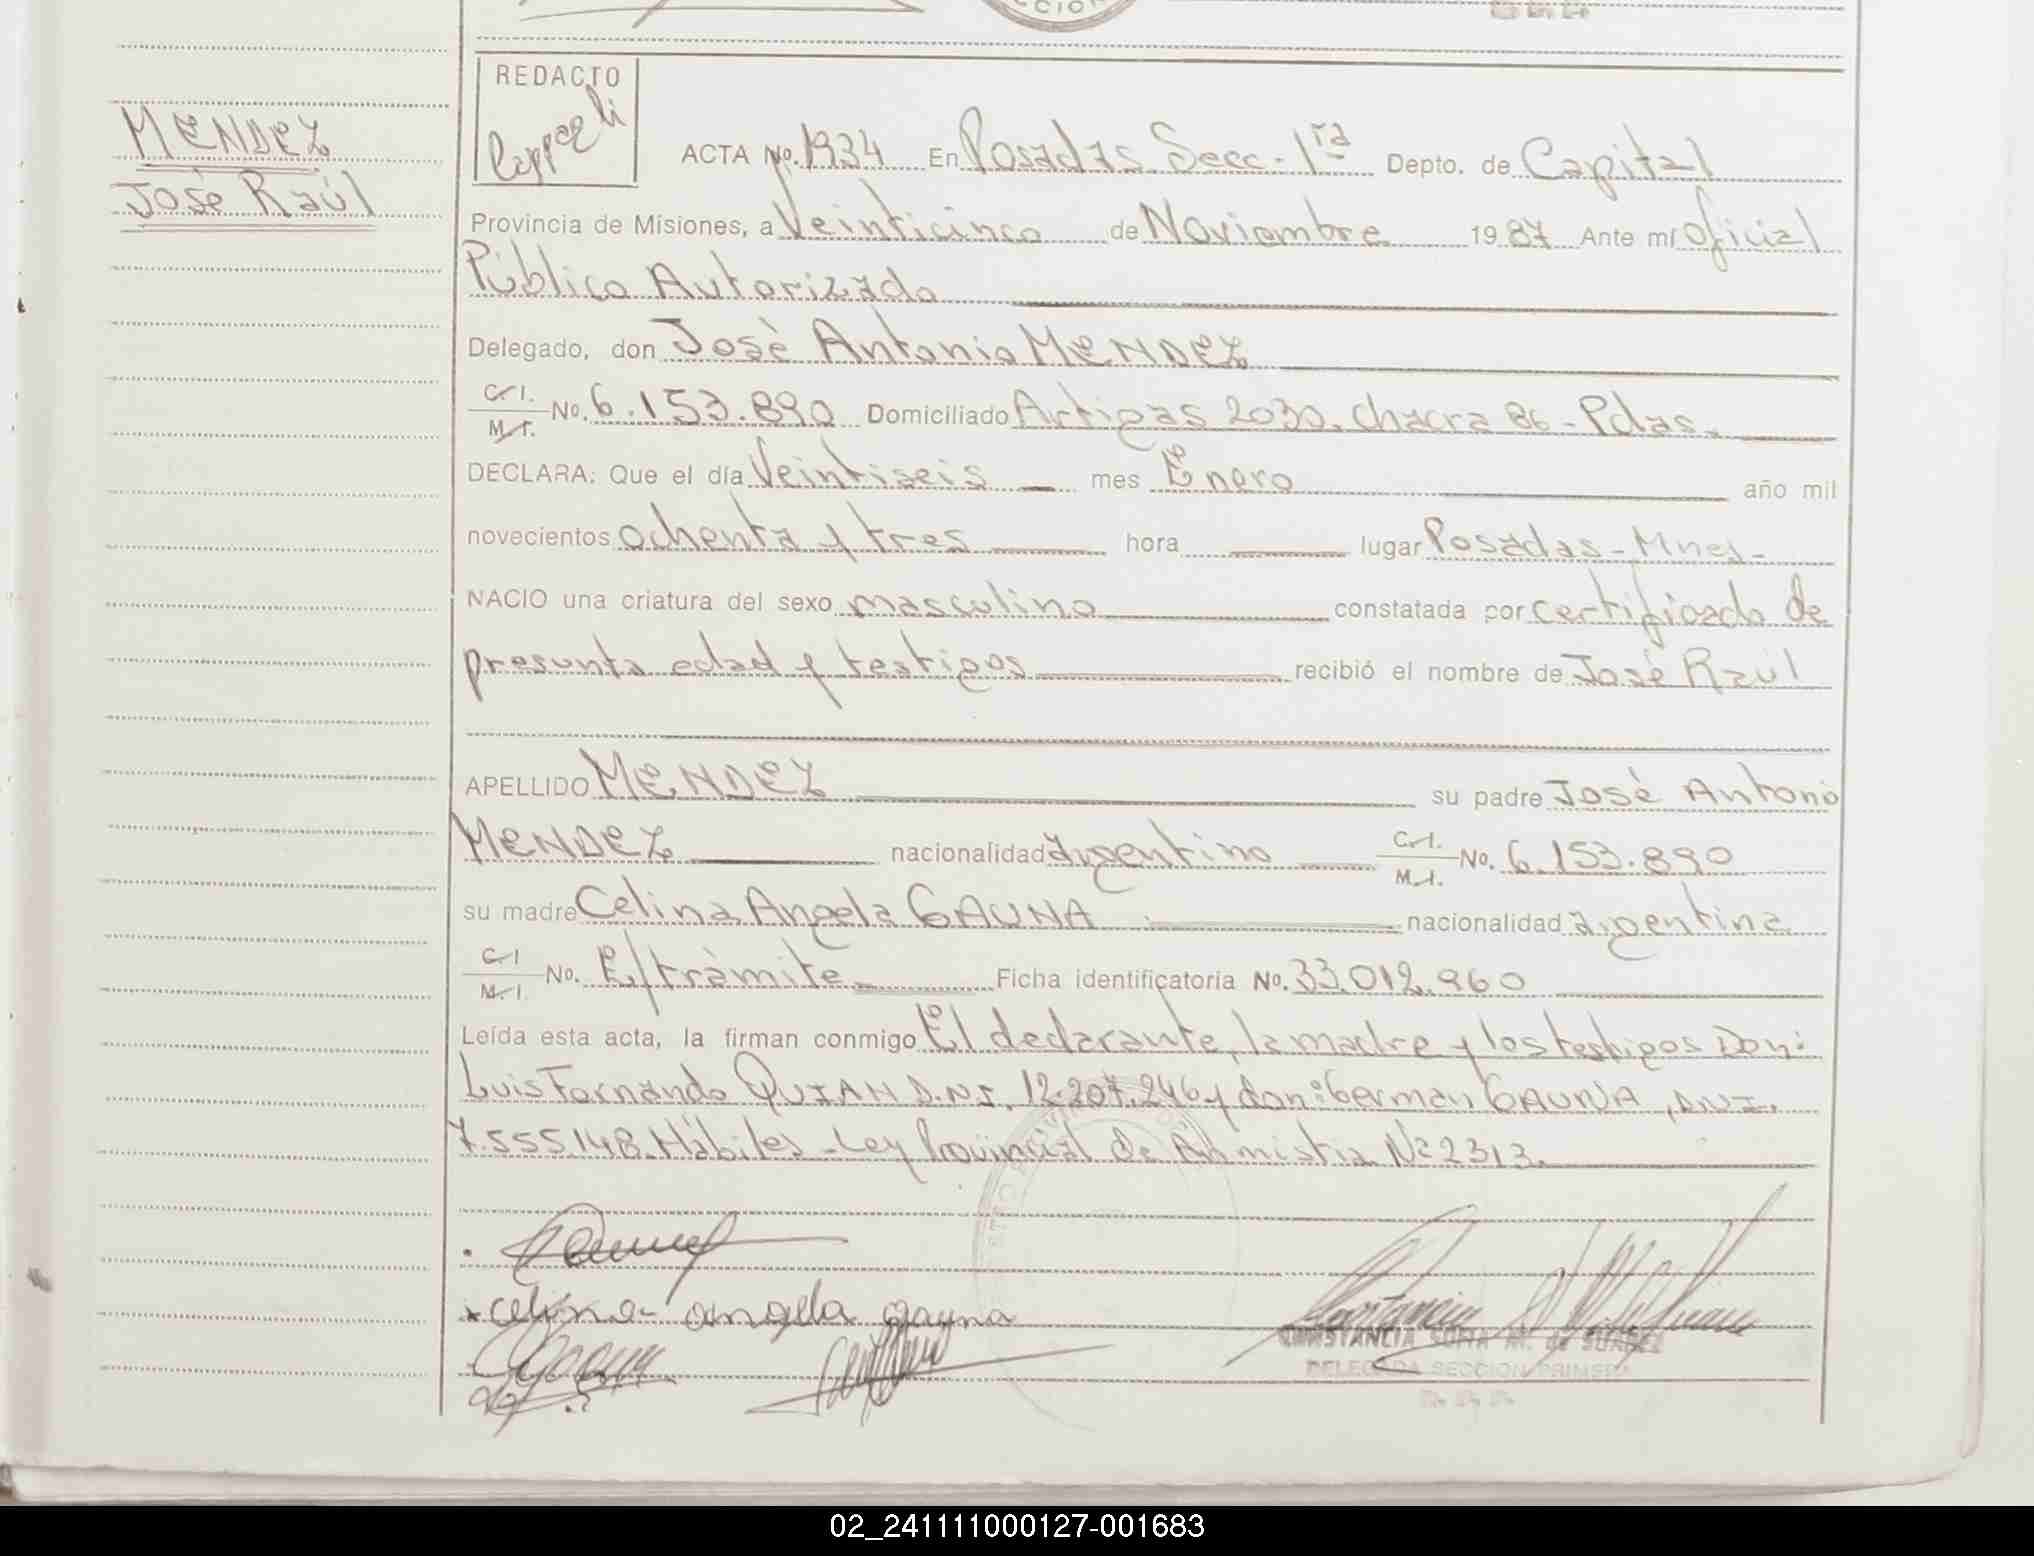 CCION
MENDEZ
José Raúl
REDACTO
ACTA No. 1934 En Posadas Secc. 1ra Depto. de Capital
Provincia de Misiones, a Veinticinco de Noviembre 19 87 Ante mí Oficial
Público Autorizado
Delegado, don José Antonio MENDEZ
C.I. M.I. No. 6.153.890 Domiciliado Artigas 2030. Chacra 86 - Pdas.
DECLARA: Que el día Veintiseis mes Enero año mil
novecientos ochenta y tres hora lugar Posadas - Mnes -
NACIO una criatura del sexo masculino constatada por certificado de
presunta edad y testigos recibió el nombre de José Raúl
APELLIDO MENDEZ su padre José Antonio
MENDEZ nacionalidad argentino C.I. M.I. No. 6.153.890
su madre Celina Angela GAUNA nacionalidad argentina
C.I M.I. No. E/trámite Ficha identificatoria No. 33.012.960
Leída esta acta, la firman conmigo El declarante, la madre y los testigos Don:
Luis Fernando QUIAN D.N.I. 12.207.246 y don: German GAUNA, D.N.I.
7.555.148. Hábiles - Ley Provincial de Admistia Nº 2313.
celina angela gauna
CONSTANCIA SOFIA M. de SUAREZ
DELEGADA SECCION PRIMERA
02_241111000127-001683